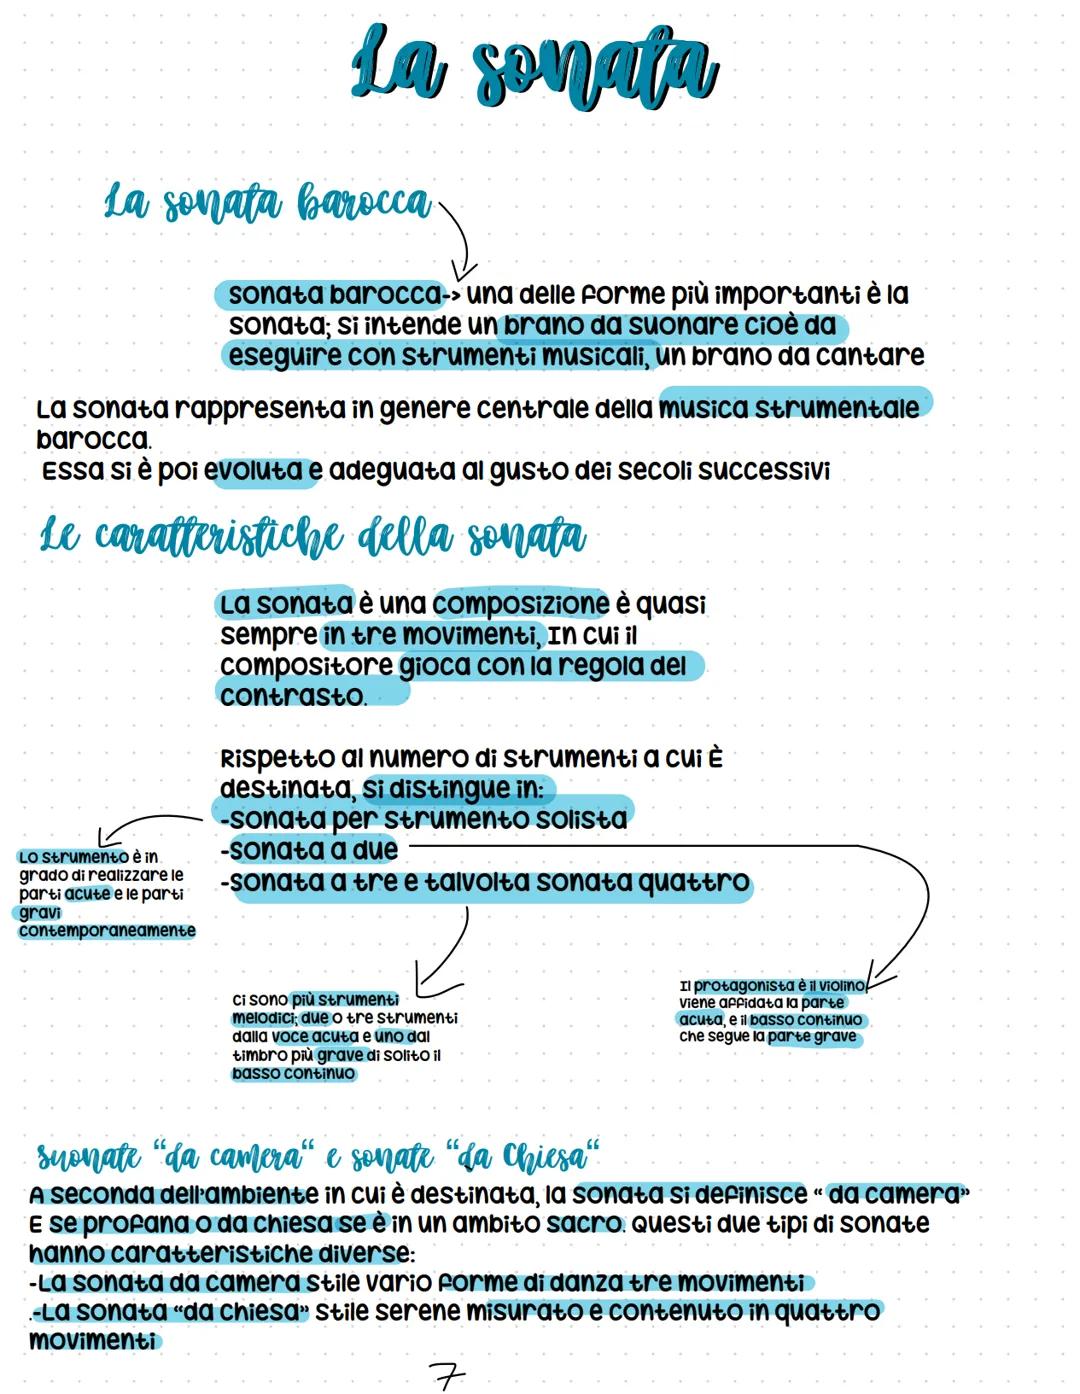 La sonata
La sonata barocca
sonata barocca-> una delle forme più importanti è la
sonata; si intende un brano da suonare cioè da
eseguire con strumenti musicali, un brano da cantare
La sonata rappresenta in genere centrale della musica strumentale
barocca.
Essa si è poi evoluta e adeguata al gusto dei secoli successivi
Le caratteristiche della sonata
La sonata è una composizione è quasi
sempre in tre movimenti, In cui il
compositore gioca con la regola del
contrasto.
Rispetto al numero di strumenti a cui È
destinata, si distingue in:
-sonata per strumento solista
-sonata a due
-sonata a tre e talvolta sonata quattro
Lo strumento è in
grado di realizzare le
parti acute e le parti
gravi
contemporaneamente
ci sono più strumenti
melodici; due o tre strumenti
dalla voce acuta e uno dal
timbro più grave di solito il
basso continuo
Il protagonista è il violino,
viene affidata la parte
acuta, e il basso continuo
che segue la parte grave
Suonate “da camera“ e sonate “da Chiesa“
A seconda dell'ambiente in cui è destinata, la sonata si definisce “ da camera”
E se profana o da chiesa se è in un ambito sacro. Questi due tipi di sonate
hanno caratteristiche diverse:
-La sonata da camera stile vario forme di danza tre movimenti
.-La sonata “da chiesa” stile serene misurato e contenuto in quattro
movimenti
7